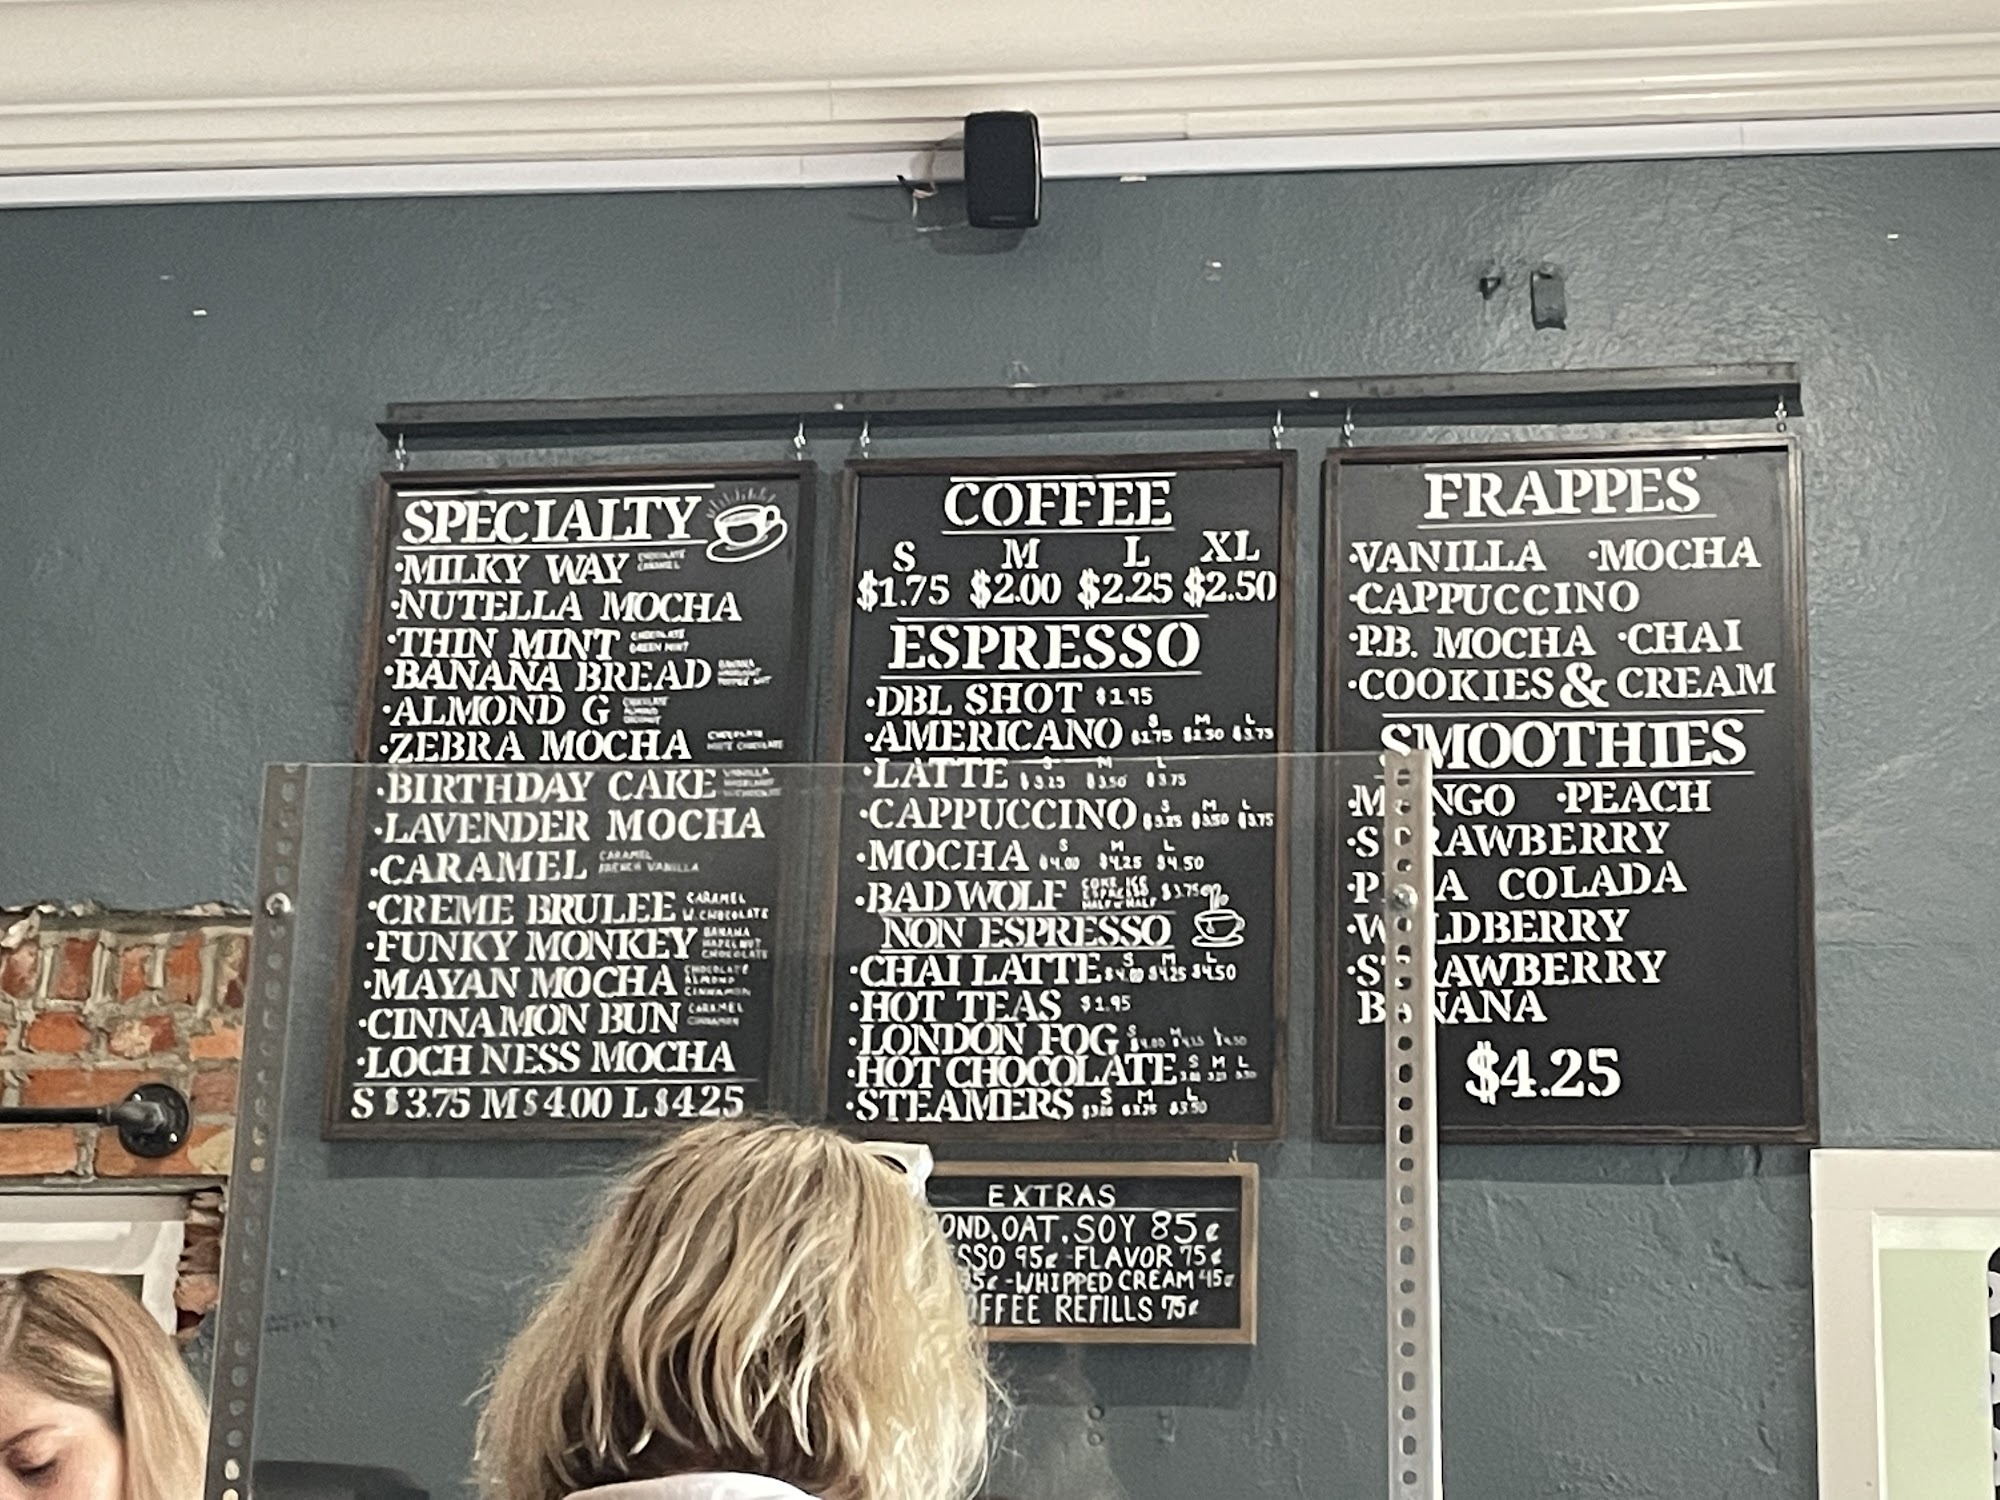 SPECIALTY
·MILKY WAY CHOCOLATE
CARAMEL
·NUTELLA MOCHA
·THIN MINT CHOCOLATE
GREEN MINT
·BANANA BREAD BANANA
HAZELNUT
·ALMOND G CHOCOLATE
ALMOND
COCONUT
·ZEBRA MOCHA CHOCOLATE
WHITE CHOCOLATE
·BIRTHDAY CAKE VANILLA
HAZELNUT
·LAVENDER MOCHA
·CARAMEL CARAMEL
FRENCH VANILLA
·CREME BRULEE CARAMEL
W. CHOCOLATE
·FUNKY MONKEY BANANA
HAZELNUT
CHOCOLATE
·MAYAN MOCHA CHOCOLATE
ALMOND
CINNAMON
·CINNAMON BUN CARAMEL
CINNAMON
·LOCH NESS MOCHA
S $3.75 M $4.00 L $4.25
COFFEE
S M L XL
$1.75 $2.00 $2.25 $2.50
ESPRESSO
·DBL SHOT $1.95
S M L
·AMERICANO $1.75 $2.50 $3.75
S M L
·LATTE $3.25 $3.50 $3.75
S M L
·CAPPUCCINO $3.25 $3.50 $3.75
S M L
·MOCHA $4.00 $4.25 $4.50
·BAD WOLF COKE ICE
ESPRESSO $3.75
HALF N HALF
NON ESPRESSO
S M L
·CHAI LATTE $4.00 $4.25 $4.50
·HOT TEAS $1.95
S M L
·LONDON FOG $4.00 $4.25 $4.50
·HOT CHOCOLATE S M L
S M L
·STEAMERS $3.00 $3.25 $3.50
FRAPPES
·VANILLA ·MOCHA
·CAPPUCCINO
·P.B. MOCHA ·CHAI
·COOKIES & CREAM
SMOOTHIES
·MANGO ·PEACH
·STRAWBERRY
·PINA COLADA
·WILDBERRY
·STRAWBERRY
BANANA
$4.25
EXTRAS
OND, OAT, SOY 85¢
SSO 95¢ -FLAVOR 75¢
5¢ -WHIPPED CREAM 45¢
OFFEE REFILLS 75¢